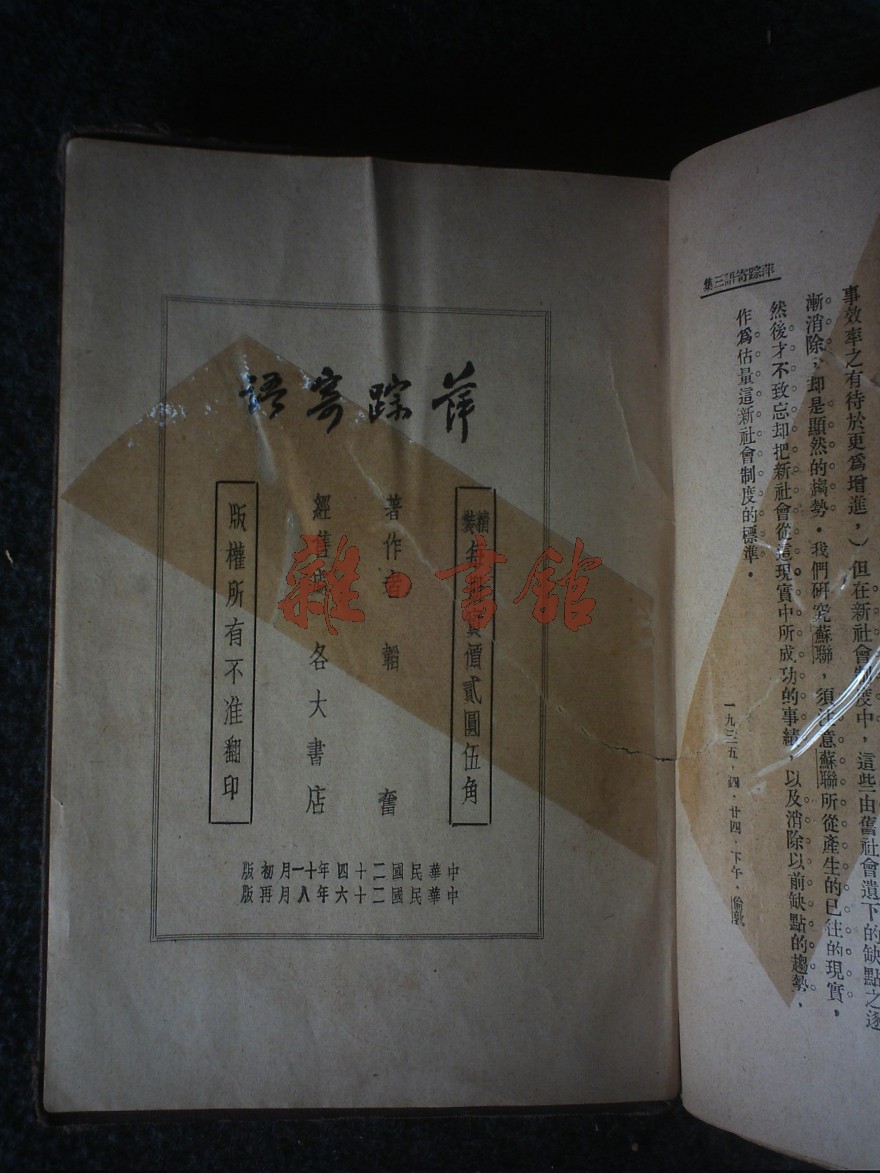 萍踪寄語三集
事效率之有待於更爲增進，）但在新社會制度中，這些由舊社會遺下的缺點之逐
漸消除，却是顯然的趨勢。我們研究蘇聯，須注意蘇聯所從產生的已往的現實，
然後才不致忘却把新社會從這現實中所成功的事績，以及消除以前缺點的趨勢，
作爲估量這新社會制度的標準。
一九三五，四，廿四，下午，倫敦。
萍踪寄語
精裝每實價貳圓伍角
著作者 韜奮
經售 各大書店
版權所有不准翻印
中華民國二十四年十一月初版
中華民國二十六年八月再版
雜·書館